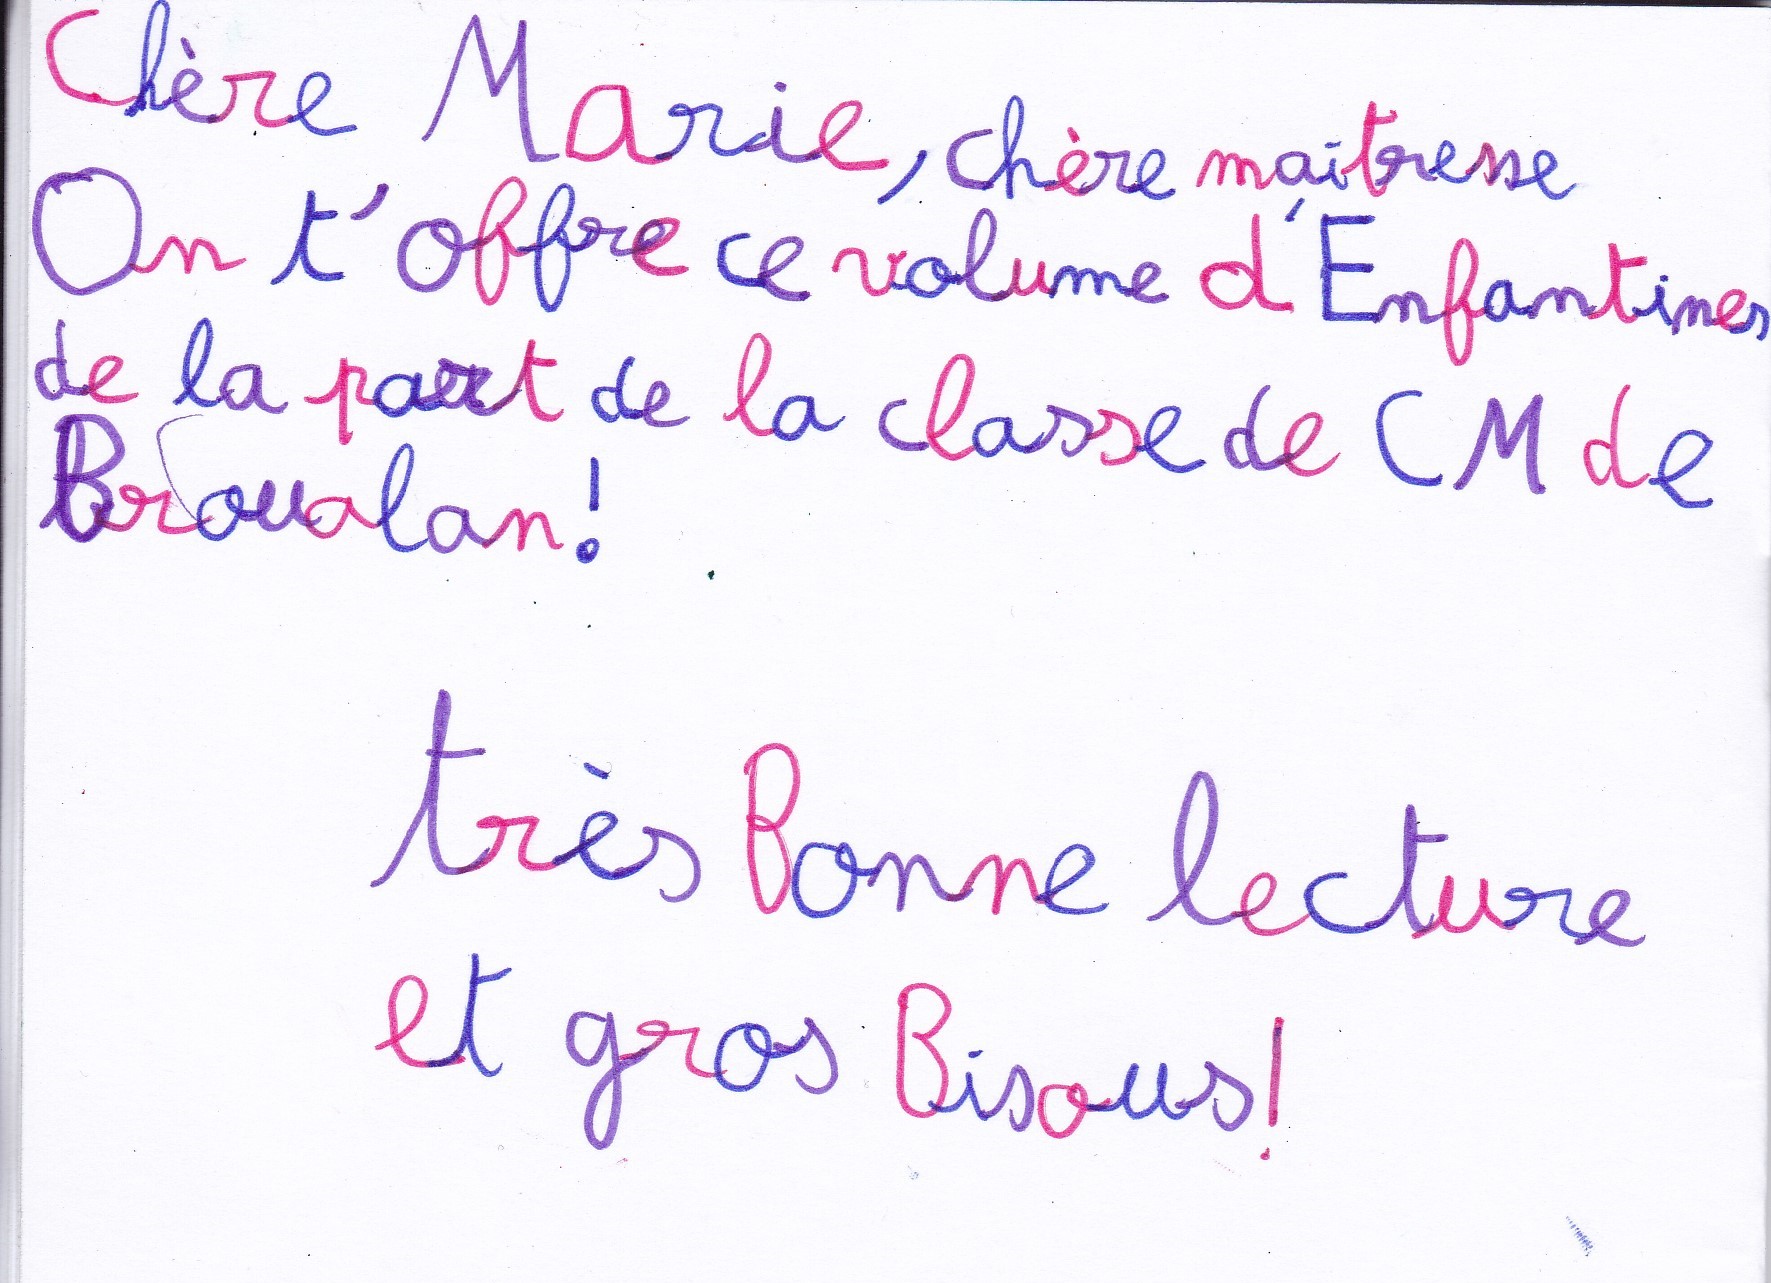 Chère Marie, chère maitresse
On t'offre ce volume d'Enfantines
de la part de la classe de CM de
Broualan!
très Bonne lecture
et gros Bisous!